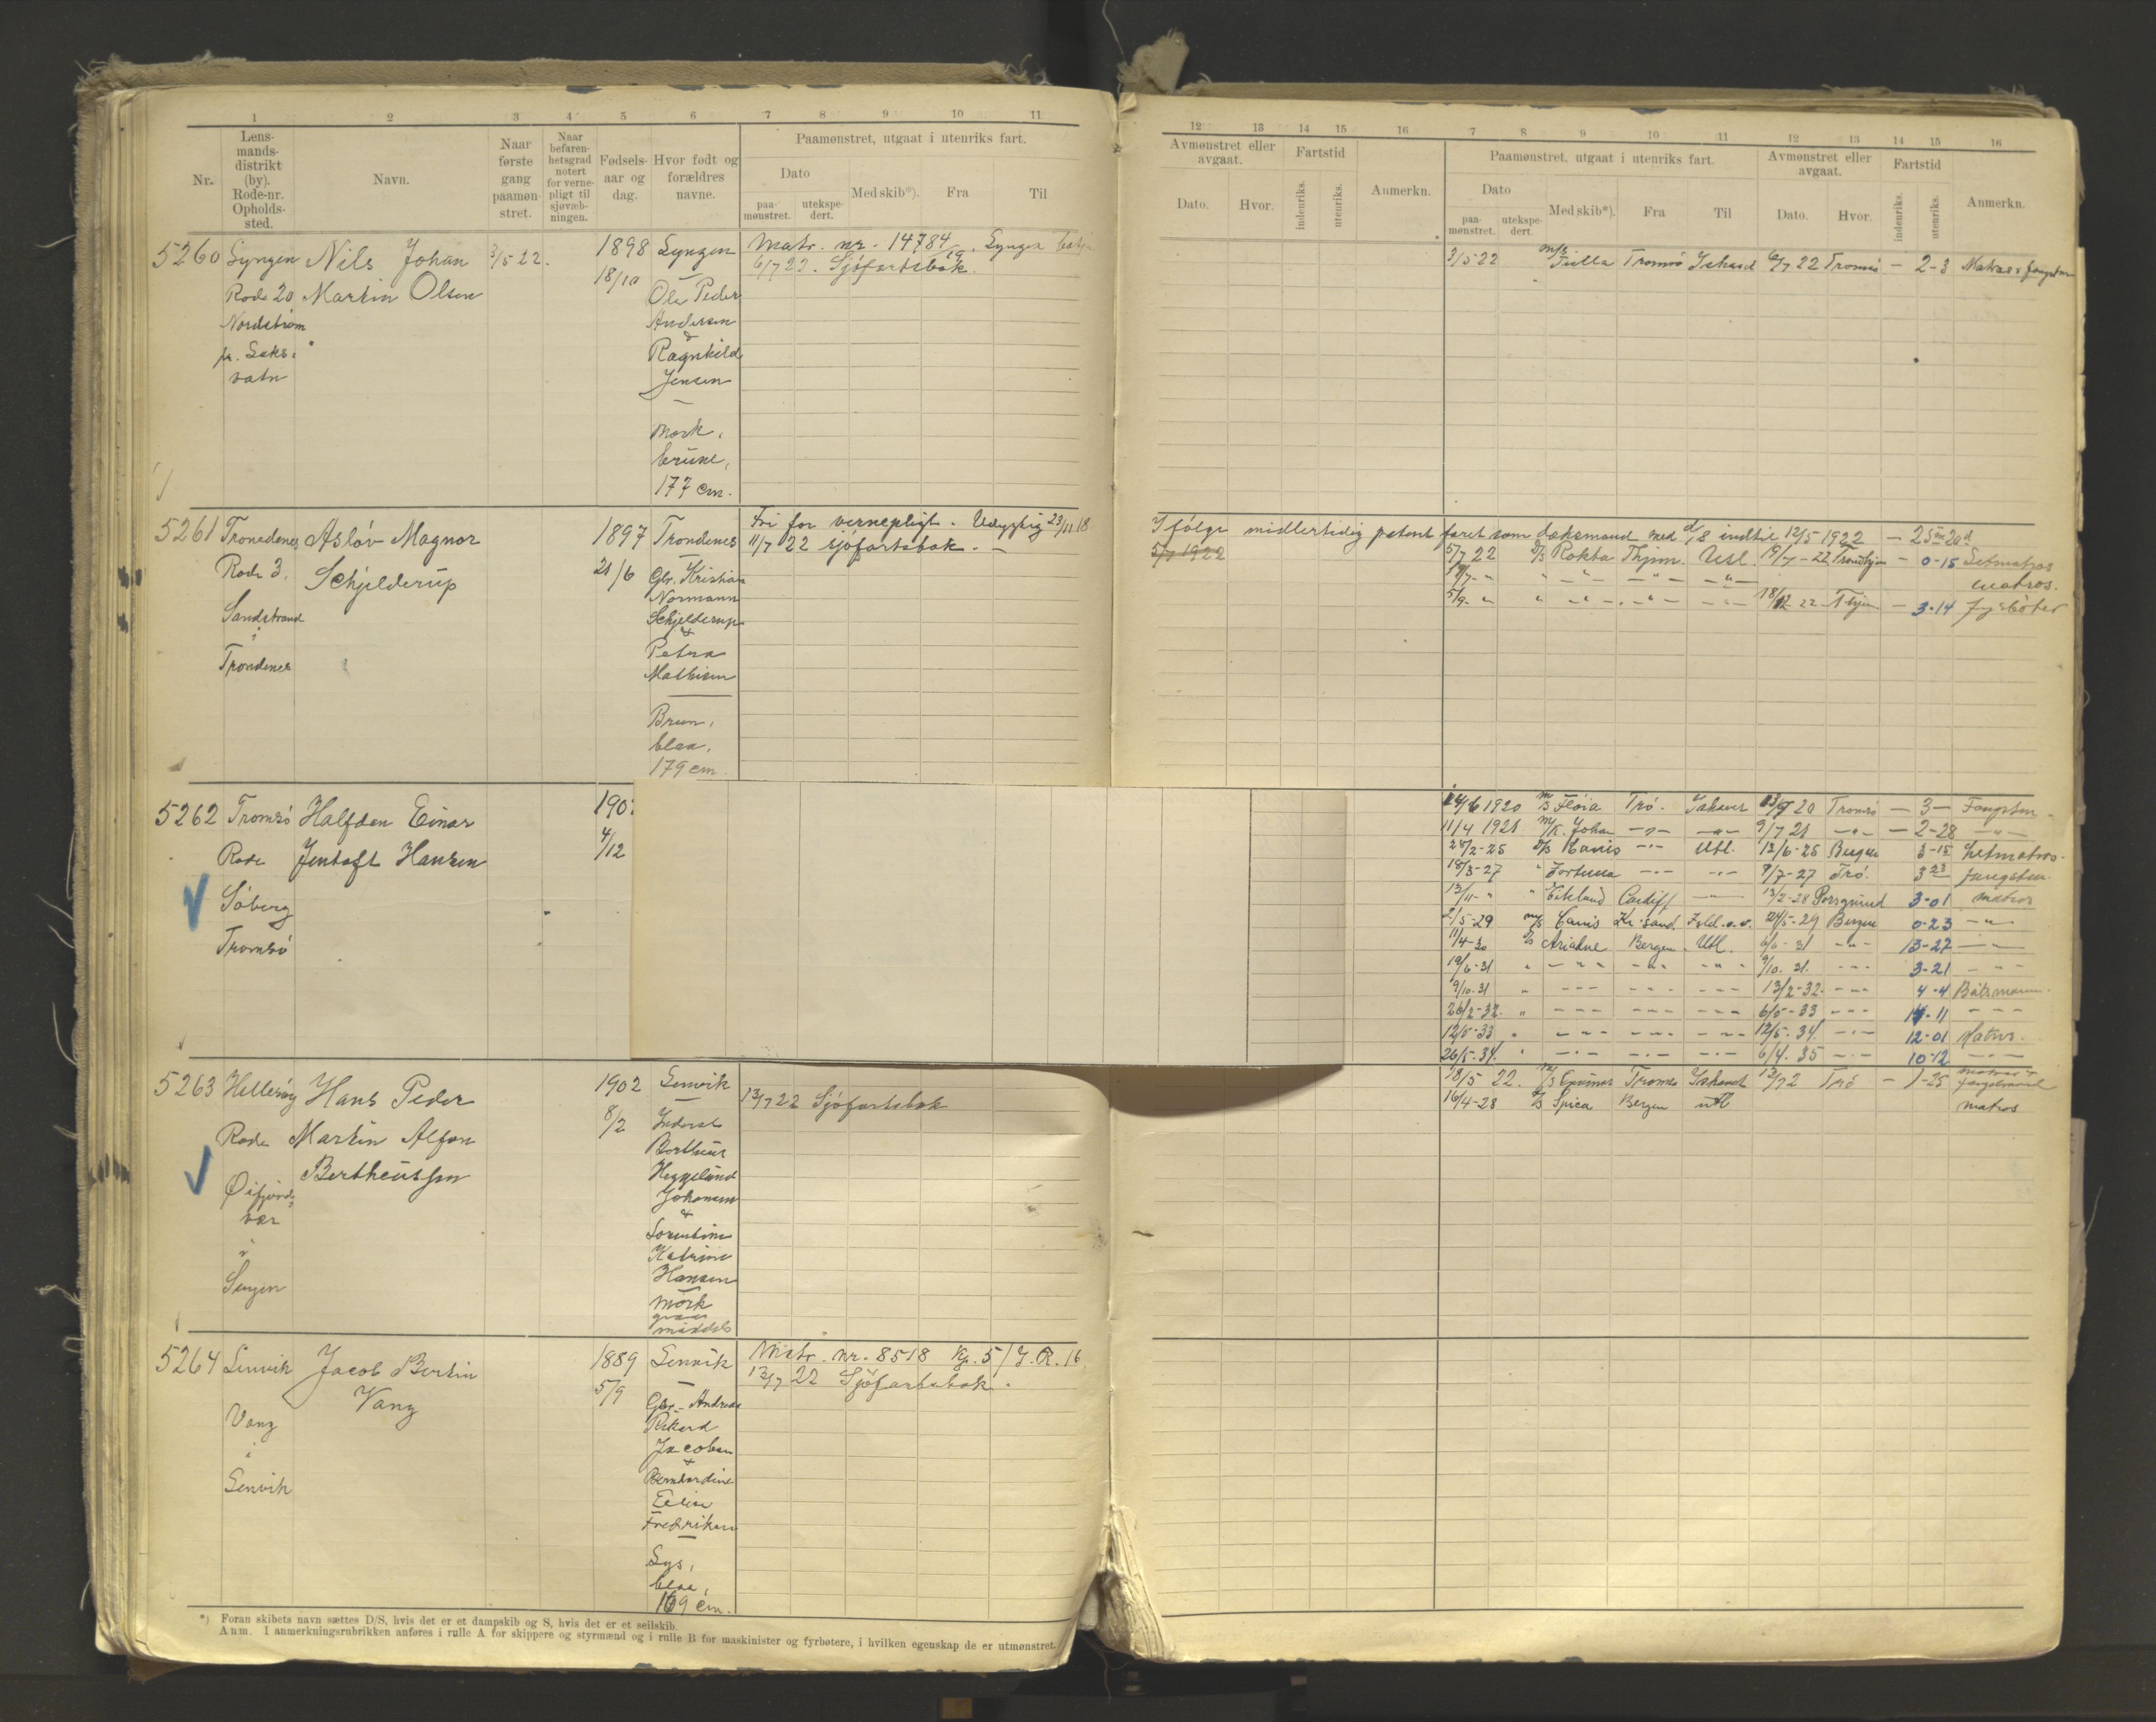 1 2 3 4 5 6 7 8 9 10 11
Nr.
Lens-
mands-
distrikt
(by).
Rode-nr.
Opholds-
sted.
Navn.
Naar
første
gang
paamøn-
stret.
Naar
befaren-
hetsgrad
notert
for verne-
pligt til
sjøvæb-
ningen.
Fødsels-
aar og
dag.
Hvor født og
forældres
navne.
Paamønstret, utgaat i utenriks fart.
Dato
paa-
mønstret.
utekspe-
dert.
Med skib*).
Fra
Til
5260 Lyngen Nils Johan 3/5 22. 1898 Lyngen Matr. nr. 14784
Rode 20 Martin Olsen 18/10 6/7 22. Sjöfartsbok.
Ole Peder
Nordstrøm Andersen
&
Ragnhild
vatn Jensen
Mørk,
brune,
177 cm.
5261 Trondenes Asløv Magnor 1897 Trondenes Fri for vernepligt. Udygtig 23/11 18
Rode 3. Schjelderup 21/6 11/7 22 sjöfartsbok. —
Gbr. Kristian
Normann
Sandstrand Schjelderup
i &
Trondenes Petra
Mathisen
Brun,
blaa,
179 cm.
5262 Tromsö Halfdan Einar 190
Rode Jentoft Hansen 4/12
Söberg
Tromsö
5263 Hellesøy Hans Peder 1902 Lenvik 13/7 22 Sjöfartsbok
Rode Martin Alfon 8/2 Inderst
Bertheussen Bertheus
Heggelund
vær Johansen
&
i Katrine
Senjen Hansen
mörk
middels
5264 Lenvik Jacob Bertin 1889 Lenvik Matr. nr. 8518 Kp. 5/I.R. 16.
Vang 5/9 13/7 22 Sjöfartsbok.
Gbr. Andreas
Vang Rikard
i Jacobsen
&
Lenvik Bernhardine
Elise
Fredriksen
Lys,
blaa,
169 cm.
*) Foran skibets navn sættes D/S, hvis det er et dampskib og S, hvis det er et seilskib.
Anm. I anmerkningsrubrikken anføres i rulle A for skippere og styrmænd og i rulle B for maskinister og fyrbøtere, i hvilken egenskap de er utmønstret.
12 13 14 15 16 7 8 9 10 11 12 13 14 15 16
Avmønstret eller
avgaat.
Dato.
Hvor.
Fartstid
indenriks.
utenriks.
Anmerkn.
Paamønstret, utgaat i utenriks fart.
Dato
paa-
mønstret.
utekspe-
dert.
Med skib*).
Fra
Til
Avmønstret eller
avgaat.
Dato.
Hvor.
Fartstid
indenriks.
utenriks.
Anmerkn.
3/5 22 Tromsö Ishavet 6/7 22 Tromsö — 2-3
Ifölge midlertidig patent faret som baksmand med indtil 12/5 1922
5/7 1922
5/7 22 D/S Rokta Thjem Utl. 19/7-22 Trondhjem — 0-15 Letmatros
matros.
5/9- " 18/12 22 Thjem — 3-14 fyrböter
1920 M/S Flöia Trö. Ishavet 20 Tromsö — 3 — Fangstm.
11/4 1921 M/K. Johan — " — — " — 9/7 21 — " — — 2-28 — " —
28/2-25 D/S Canis — " — Utl. 12/6-25 Bergen 3-15 Letmatros.
18/3-27 " Fortuna — " — — " — 9/7-27 Trö. 3 23 fangstm.
13/11- " " Eikland Cardiff — " — 13/2-28 Porsgrund 3-01 matros
2/5-29 Canis Kr.sand 24/5-29 Bergen 0-23 — " —
11/4-30 D/S Ariadne Bergen Utl. 6/6-31 — " — 13-27 — " —
19/6-31 " — " — — " — — " — 9/10.31. — " — 3-21 — " —
9/10-31 " — " — — " — — " — 13/2-32. — " — 4-4 Båtsmann.
26/2-32. " — " — — " — — " — 6/5-33 — " — 14-11 — " —
12/5-33 " — " — — " — — " — 12/5.34. — " — 12-01 Matros.
26/5-34. " — " — — " — — " — 6/4.35 — " — 10-12 — " —
18/5 22. Tromsö Ishavet Trö — 1-25 matros
16/4-28 D/S Spica Bergen utl
matros